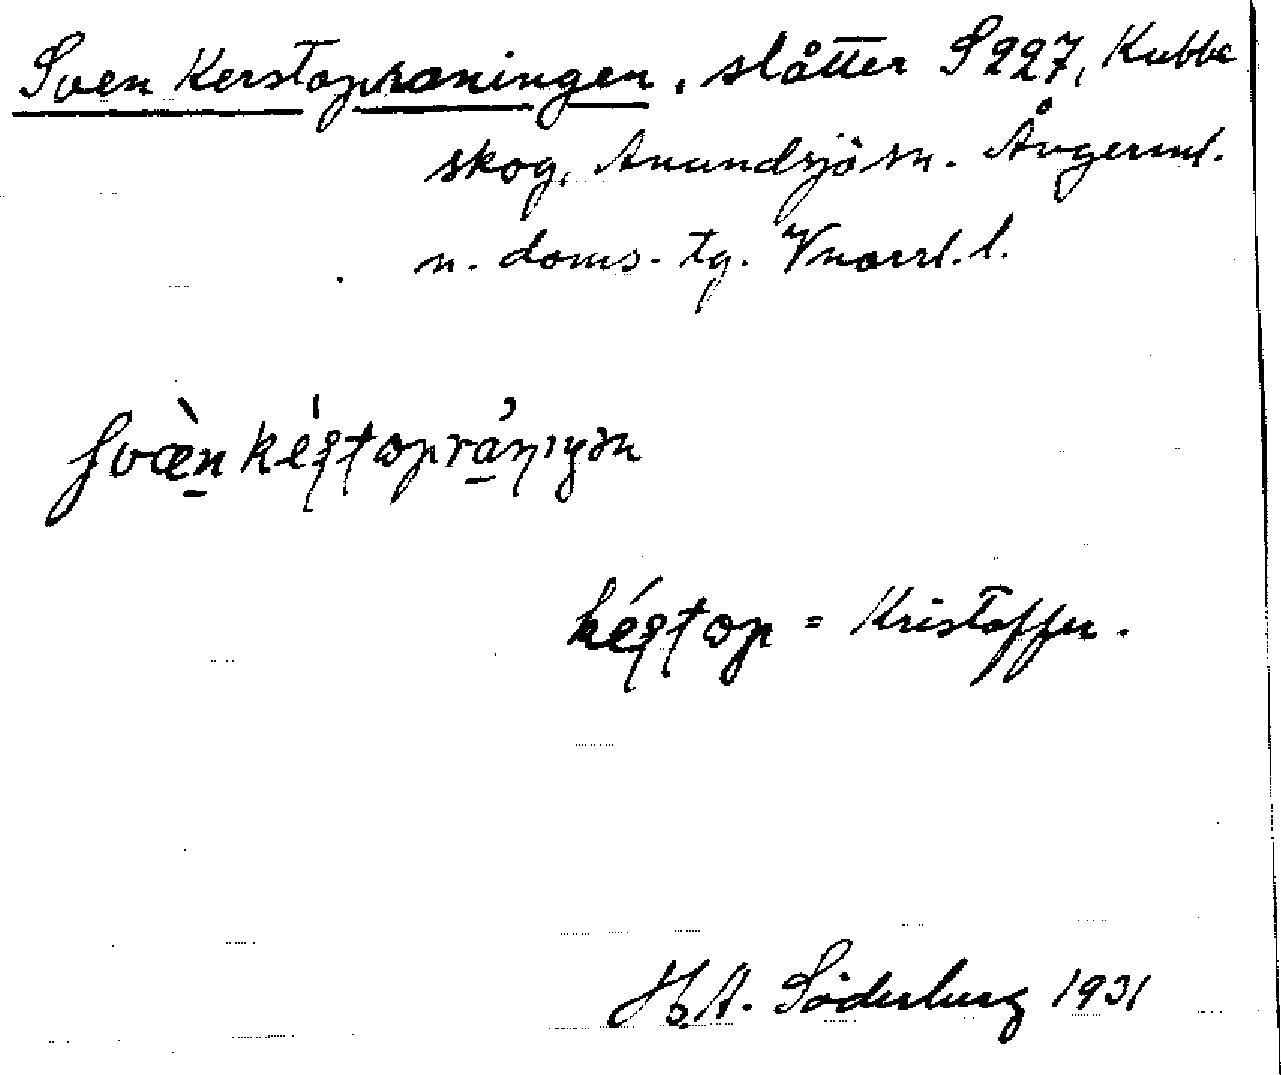 Sven Kerstopraningen, slåtter S 227, Kubbe
skog, Anundsjö sn. Ångerml.
n. doms. tg. Vnorrl. l.
késtop = Kristoffer.
H.A. Söderberg 1931